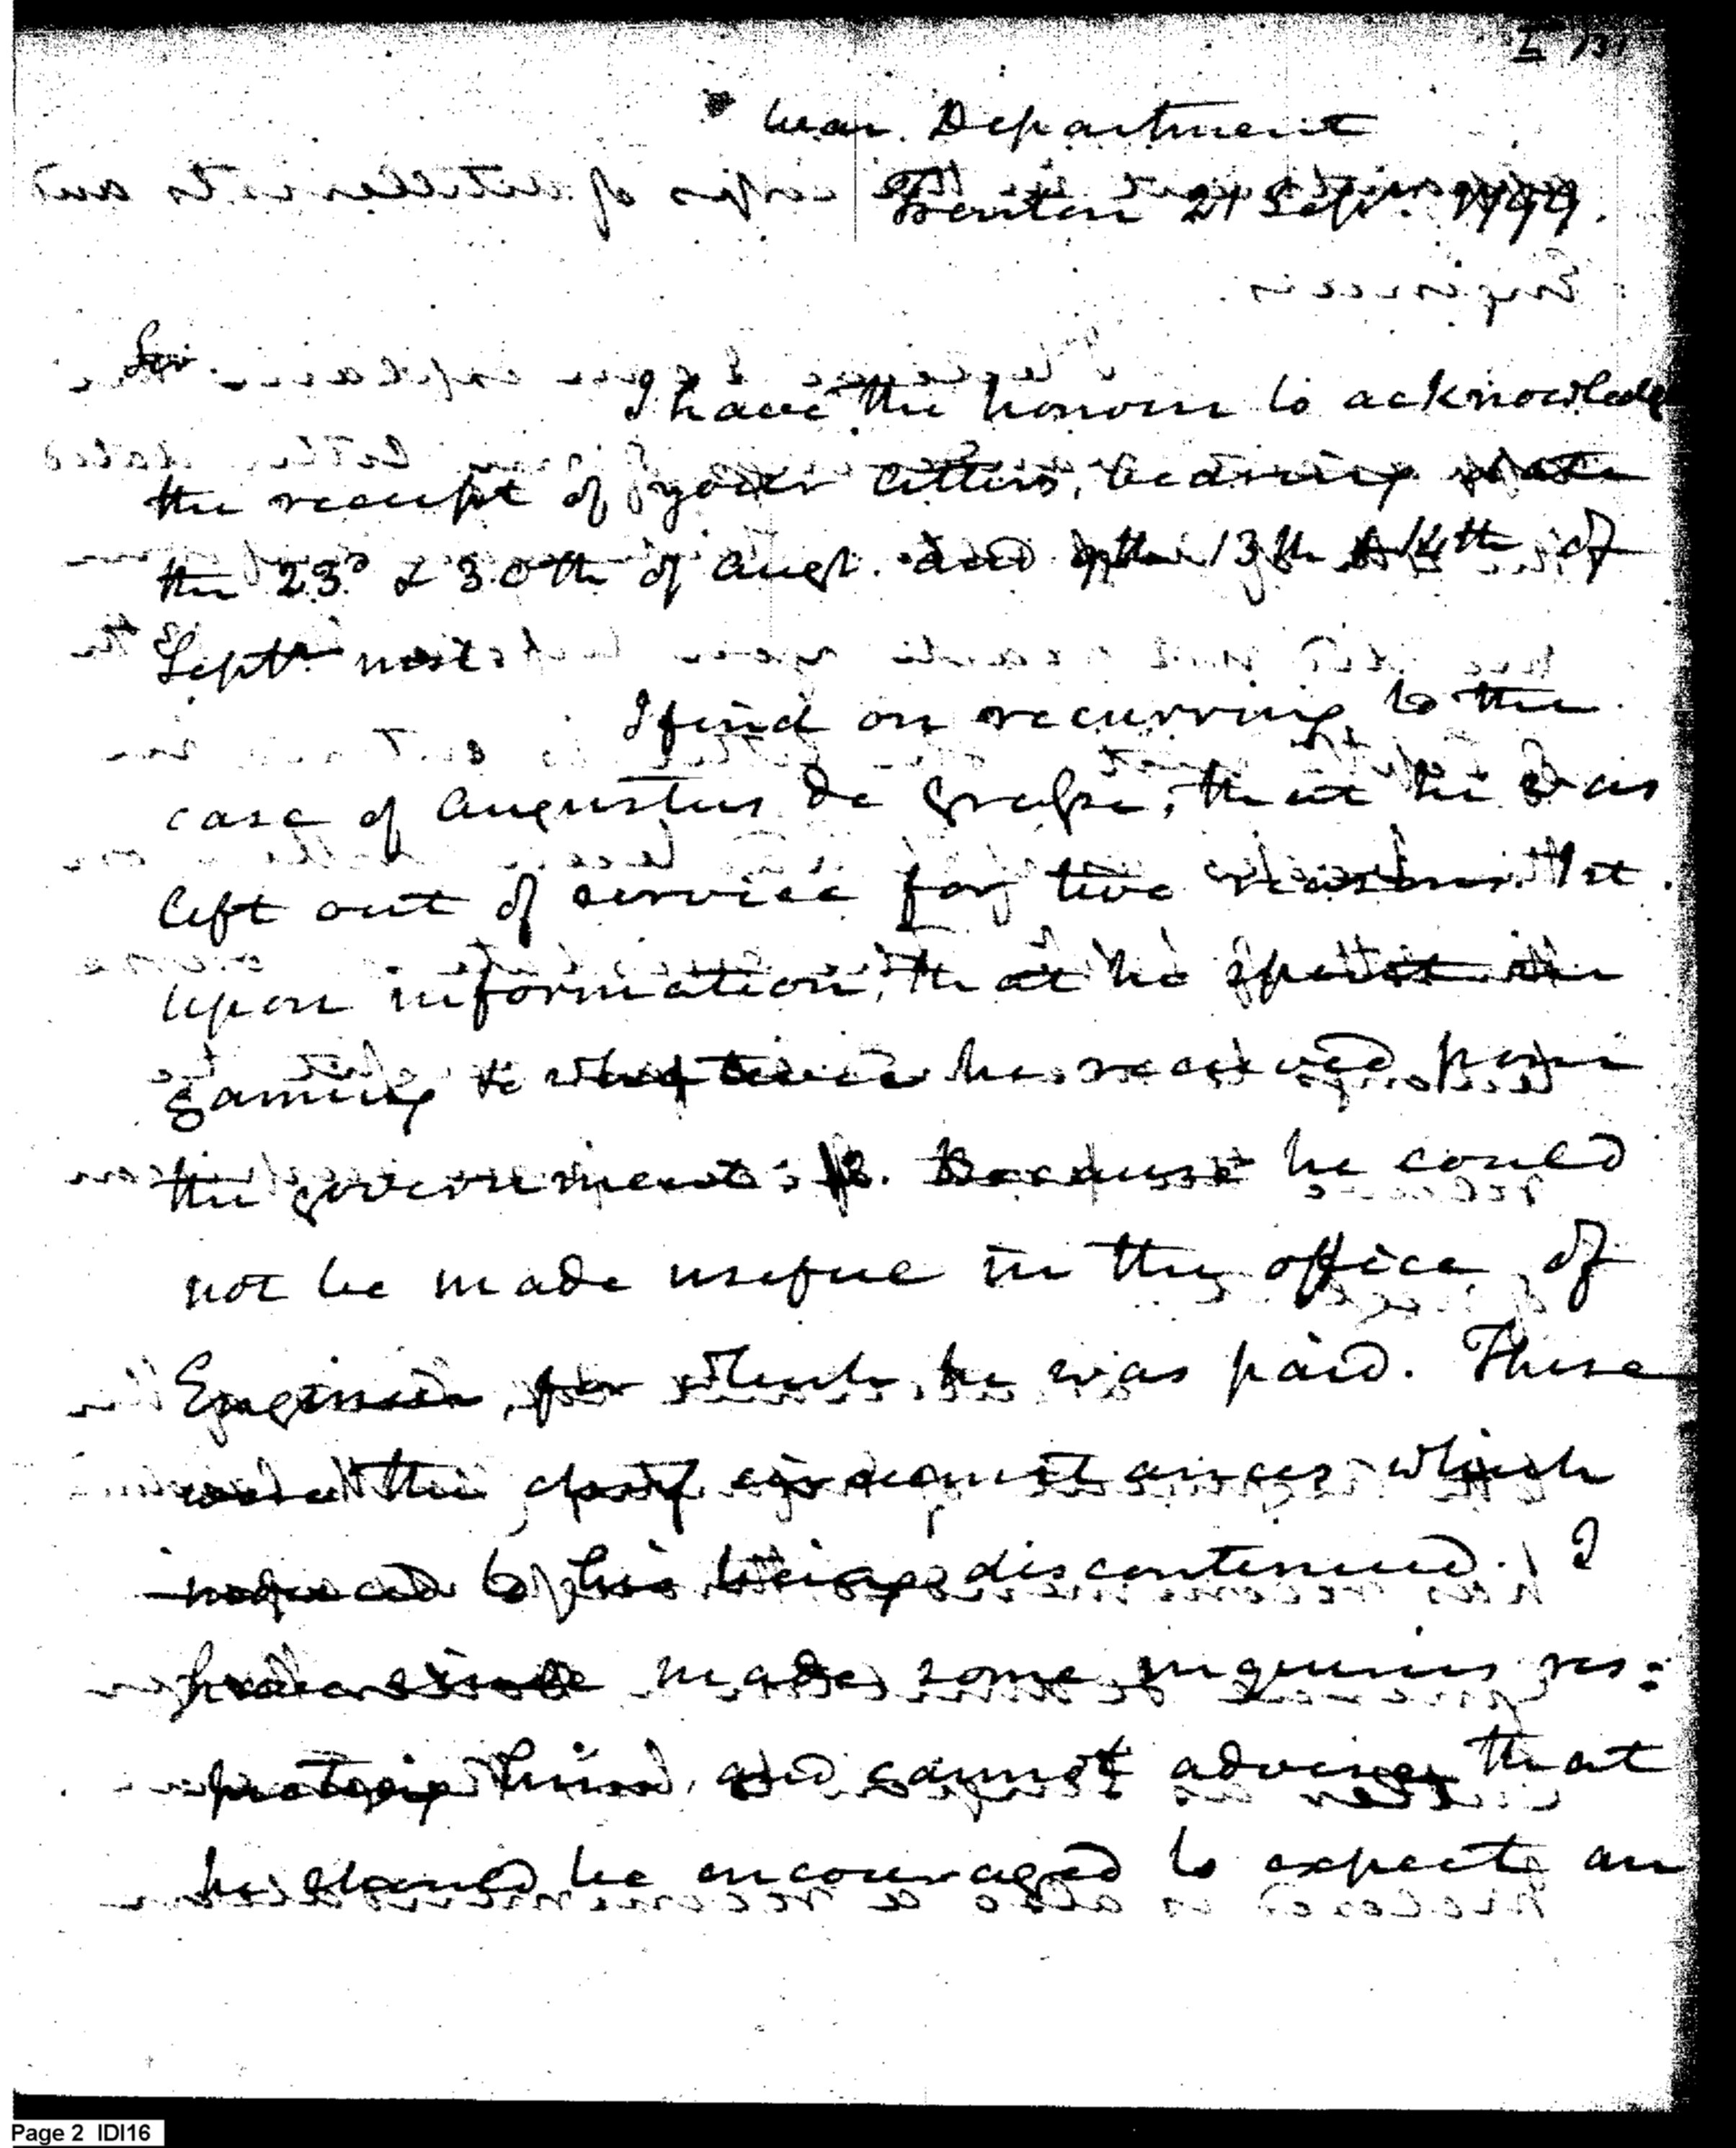 War Department
Trenton 21 Sept. 1799.
Sir.
I have the honour to acknowledge
the receipt of your letters, bearing date
the 23d & 30th of Augt. and the 13th & 14th of
Septr
I find on recurring to the
case of Augustus De Grasse, that he was
left out of service for two reasons. 1st.
Upon information, that he spent in
gaming whatever he received from
the government; 2. Because he could
not be made useful in the office of
Engineer, for which he was paid. These
were the chief circumstances which
induced to his being discontinued. I
have since made some inquiries res:
pecting him, and cannot advise, that
he should be encouraged to expect an
Page 2 IDI16